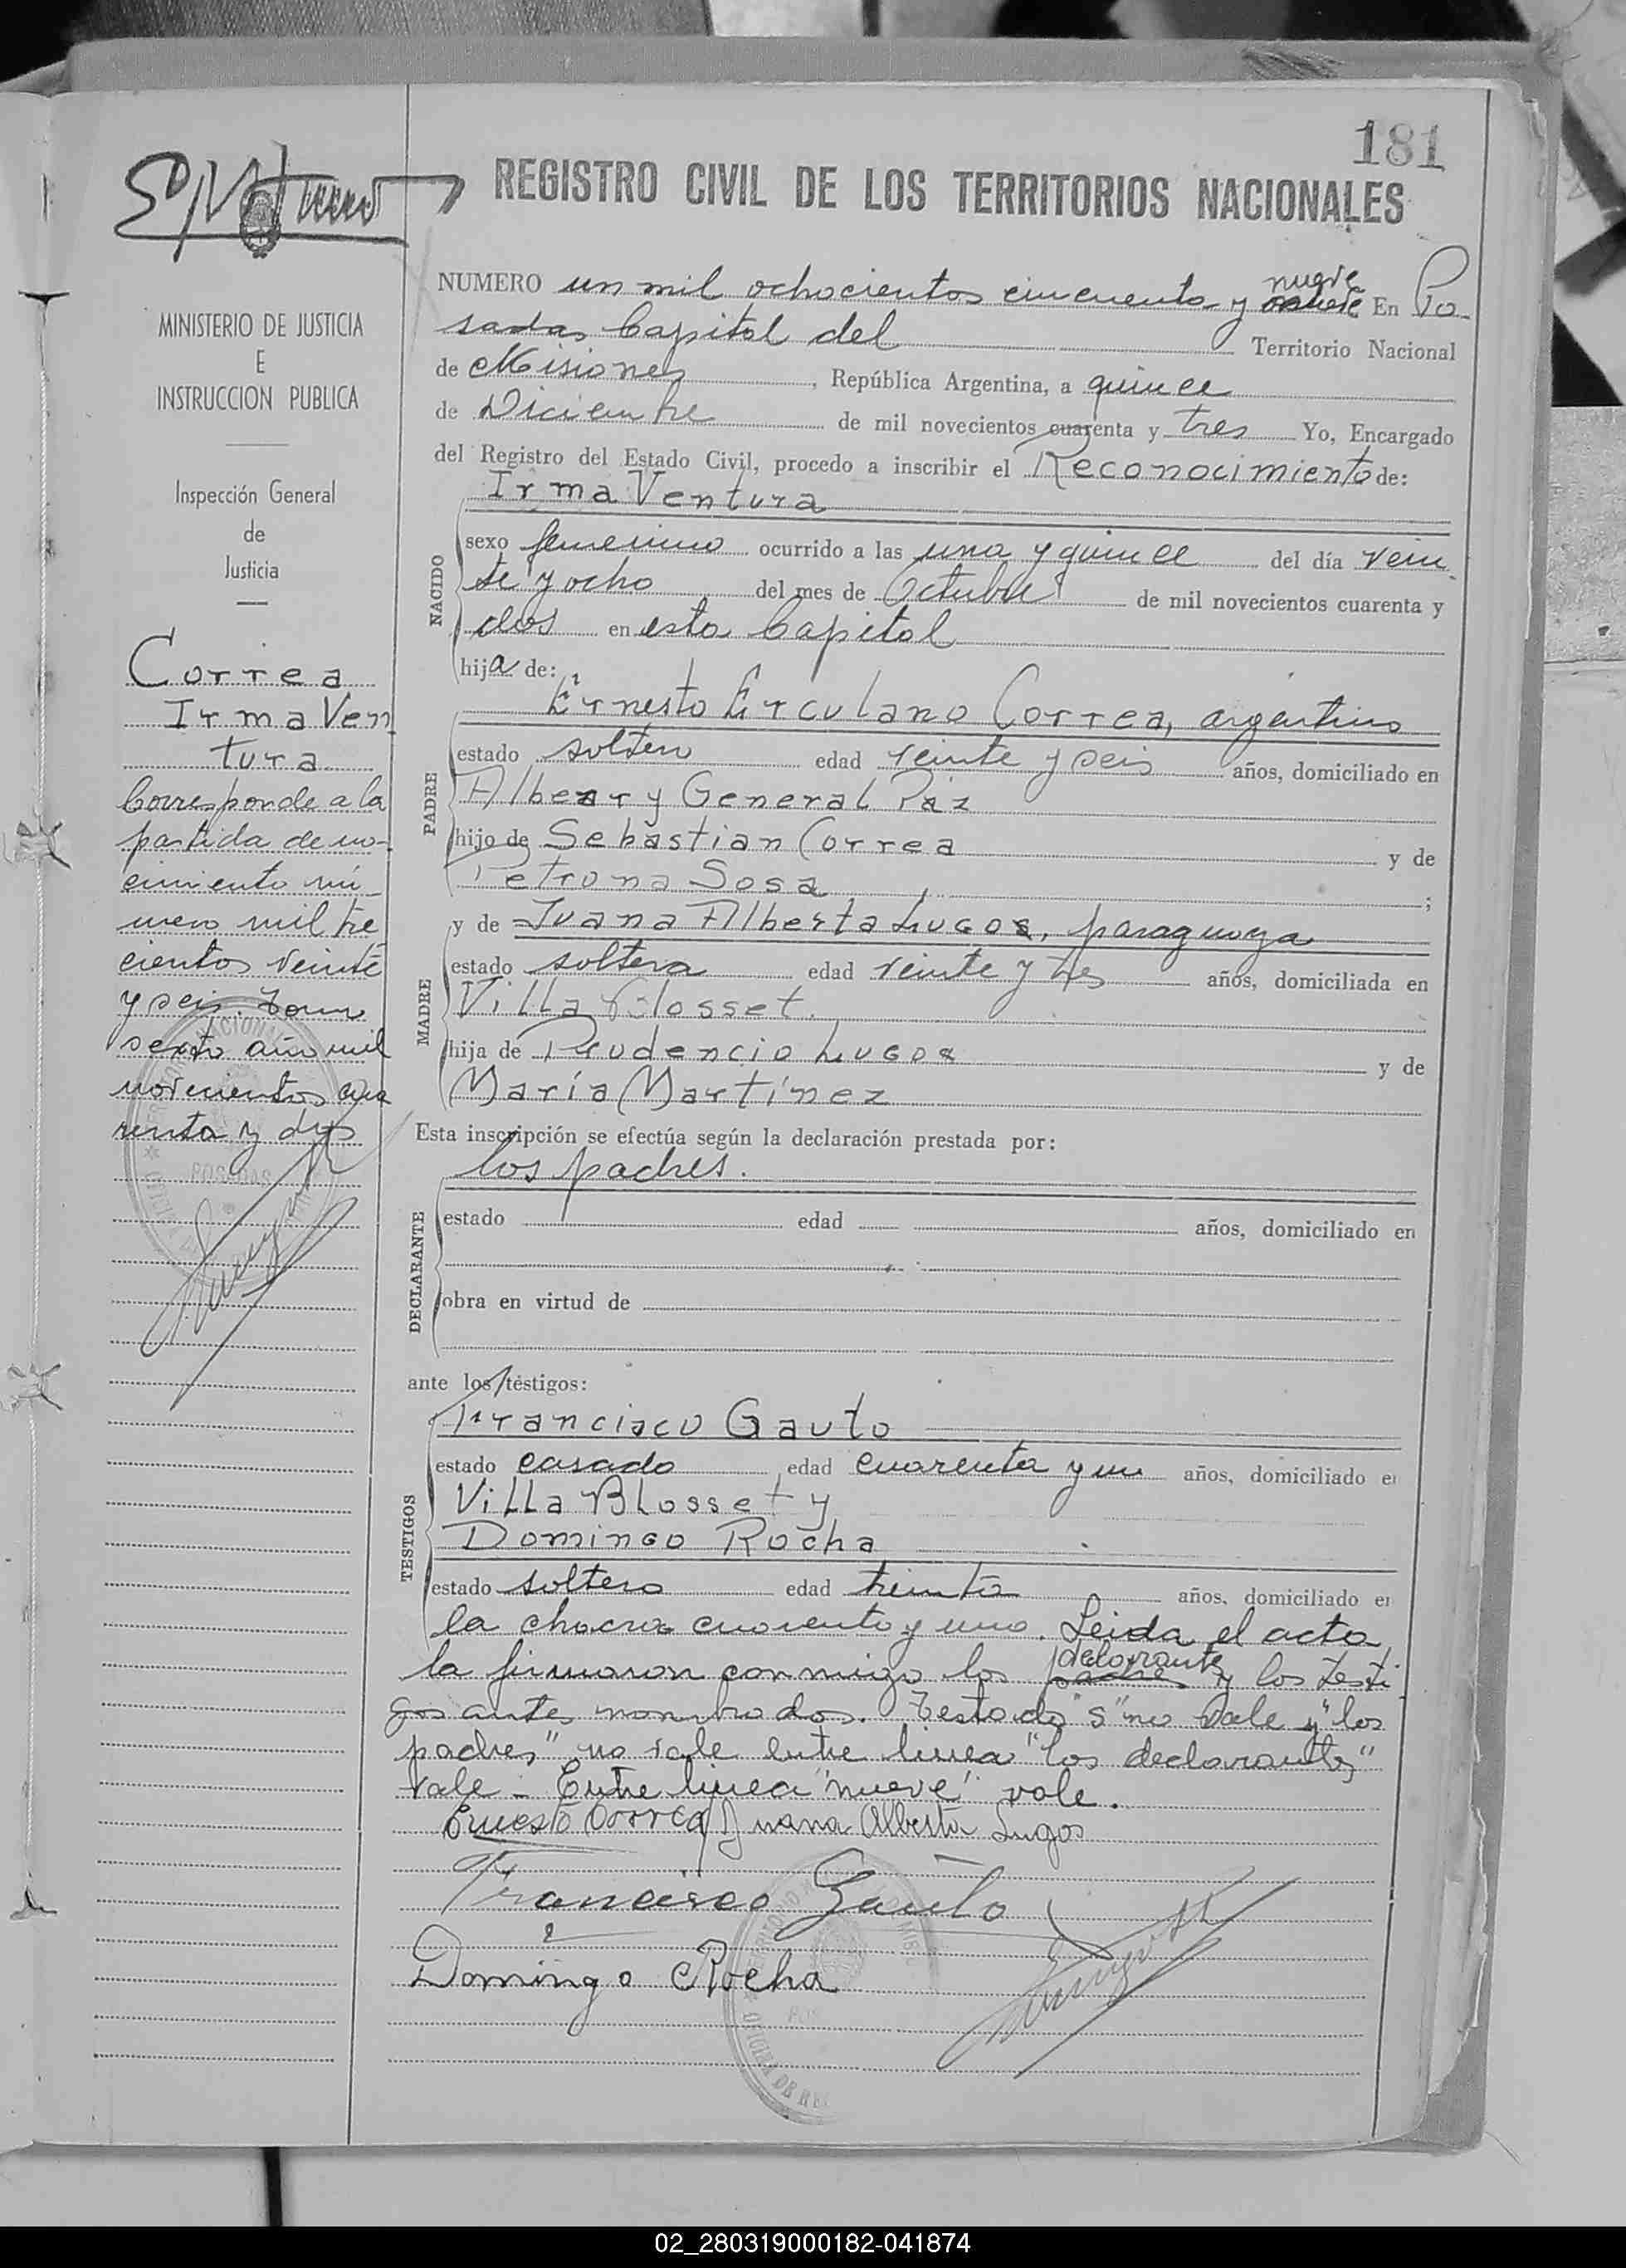 181
REGISTRO CIVIL DE LOS TERRITORIOS NACIONALES
MINISTERIO DE JUSTICIA
E
INSTRUCCION PUBLICA
Inspección General
de
Justicia
Correa
Irma Ven
tura
Corresponde a la
partida de na-
cimiento nú-
mero mil tre
cientos veinte
y seis tomo
sexto año mil
novecientos cua
renta y dos
NUMERO un mil ochocientos cincuenta y nueve En Po-
sadas Capital del Territorio Nacional
de Misiones, República Argentina, a quince
de Diciembre de mil novecientos cuarenta y tres Yo, Encargado
del Registro del Estado Civil, procedo a inscribir el Reconocimiento de:
Irma Ventura
NACIDO
sexo femenino ocurrido a las una y quince del día vein
te y ocho del mes de Octubre de mil novecientos cuarenta y
dos en esta Capital
hija de:
Ernesto Erculano Correa, argentino
PADRE
estado soltero edad veinte y seis años, domiciliado en
Albear y General Paz
hijo de Sebastian Correa y de
Petrona Sosa ;
y de Juana Alberta Lugos, paraguaya
MADRE
estado soltera edad veinte y tres años, domiciliada en
Villa Blosset.
hija de Prudencio Lugos y de
María Martínez
Esta inscripción se efectúa según la declaración prestada por:
los padres.
DECLARANTE
estado edad años, domiciliado en
obra en virtud de
ante los testigos:
Francisco Gauto
TESTIGOS
estado casado edad cuarenta y un años, domiciliado e
Villa Blosset y
Domingo Rocha
estado soltero edad treinta años, domiciliado e
la chacra cuarenta y uno. Leida el acta
la firmaron conmigo los declarantes y los testi
gos antes nombrados. Testado "s" no vale y "los
padres" no vale entre linea "los declarantes"
vale - Entre linea "nueve" vale.
Ernesto Correa Juana Alberta Lugos
Francisco Gauto
Domingo Rocha
02_280319000182-041874